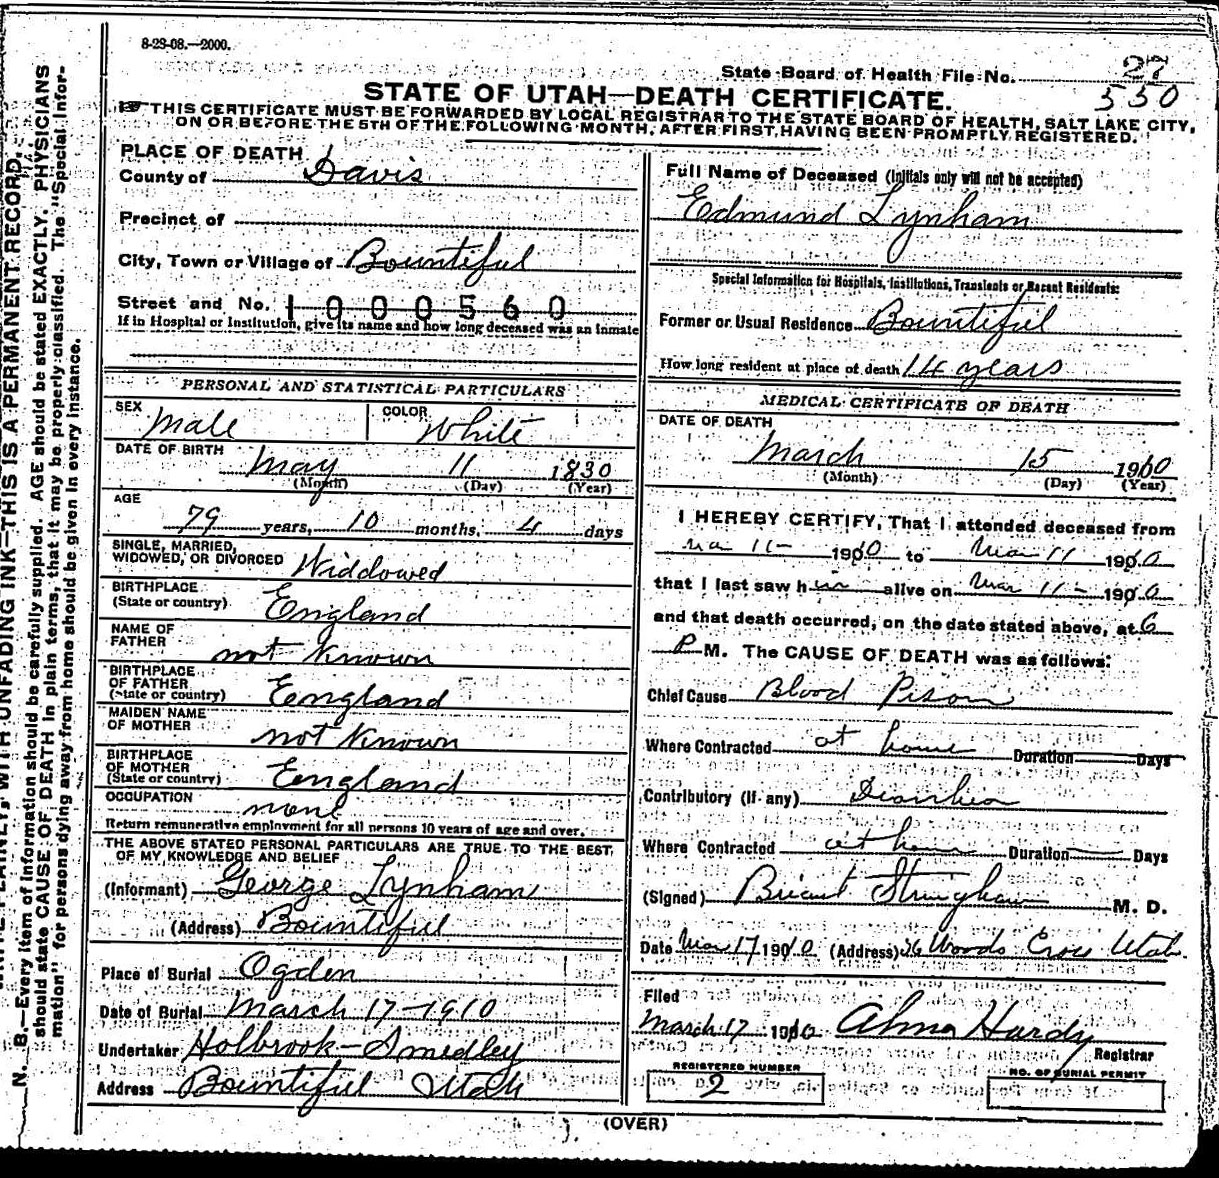 8-28-08.—2000.
State Board of Health File No. 27
550
STATE OF UTAH—DEATH CERTIFICATE.
THIS CERTIFICATE MUST BE FORWARDED BY LOCAL REGISTRAR TO THE STATE BOARD OF HEALTH, SALT LAKE CITY,
ON OR BEFORE THE 5TH OF THE FOLLOWING MONTH, AFTER FIRST HAVING BEEN PROMPTLY REGISTERED.
PLACE OF DEATH
County of Davis
Precinct of
City, Town or Village of Bountiful
Street and No. 1000560
If in Hospital or Institution, give its name and how long deceased was an inmate
PERSONAL AND STATISTICAL PARTICULARS
SEX Male COLOR White
DATE OF BIRTH May 11 1830
(Month) (Day) (Year)
AGE
79 years, 10 months, 4 days
SINGLE, MARRIED,
WIDOWED, OR DIVORCED Widdowed
BIRTHPLACE
(State or country) England
NAME OF
FATHER not Known
BIRTHPLACE
OF FATHER
(State or country) England
MAIDEN NAME
OF MOTHER not Known
BIRTHPLACE
OF MOTHER
(State or country) England
OCCUPATION none
Return remunerative employment for all persons 10 years of age and over.
THE ABOVE STATED PERSONAL PARTICULARS ARE TRUE TO THE BEST
OF MY KNOWLEDGE AND BELIEF
(Informant) George Lynham
(Address) Bountiful
Place of Burial Ogden
Date of Burial March 17-1910
Undertaker Holbrook-Smedley
Address Bountiful Utah
Full Name of Deceased (Initials only will not be accepted)
Edmund Lynham
Special Information for Hospitals, Institutions, Transients or Recent Residents:
Former or Usual Residence Bountiful
How long resident at place of death 14 years
MEDICAL CERTIFICATE OF DEATH
DATE OF DEATH
March 15 1910
(Month) (Day) (Year)
I HEREBY CERTIFY, That I attended deceased from
Mar 11- 1910 to Mar 11 1910
that I last saw him alive on Mar 11- 1910
and that death occurred, on the date stated above, at 6
P M. The CAUSE OF DEATH was as follows:
Chief Cause Blood Pison
Where Contracted at home Duration Days
Contributory (if any) Diarrhea
Where Contracted at home Duration Days
(Signed) Briant Stringham M. D.
Date Mar 17 1910 (Address) Woods Cross Utah.
Filed
March 17 1910 Alma Hardy
Registrar
REGISTERED NUMBER
2
NO. OF BURIAL PERMIT
(OVER)
WITH UNFADING INK—THIS IS A PERMANENT RECORD.
N. B.—Every item of information should be carefully supplied. AGE should be stated EXACTLY. PHYSICIANS
should state CAUSE OF DEATH in plain terms, that it may be properly classified. The "Special Infor-
mation" for persons dying away from home should be given in every instance.